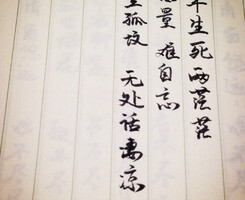 年生死两茫茫
思量 难自忘
里孤坟 无处话凄凉